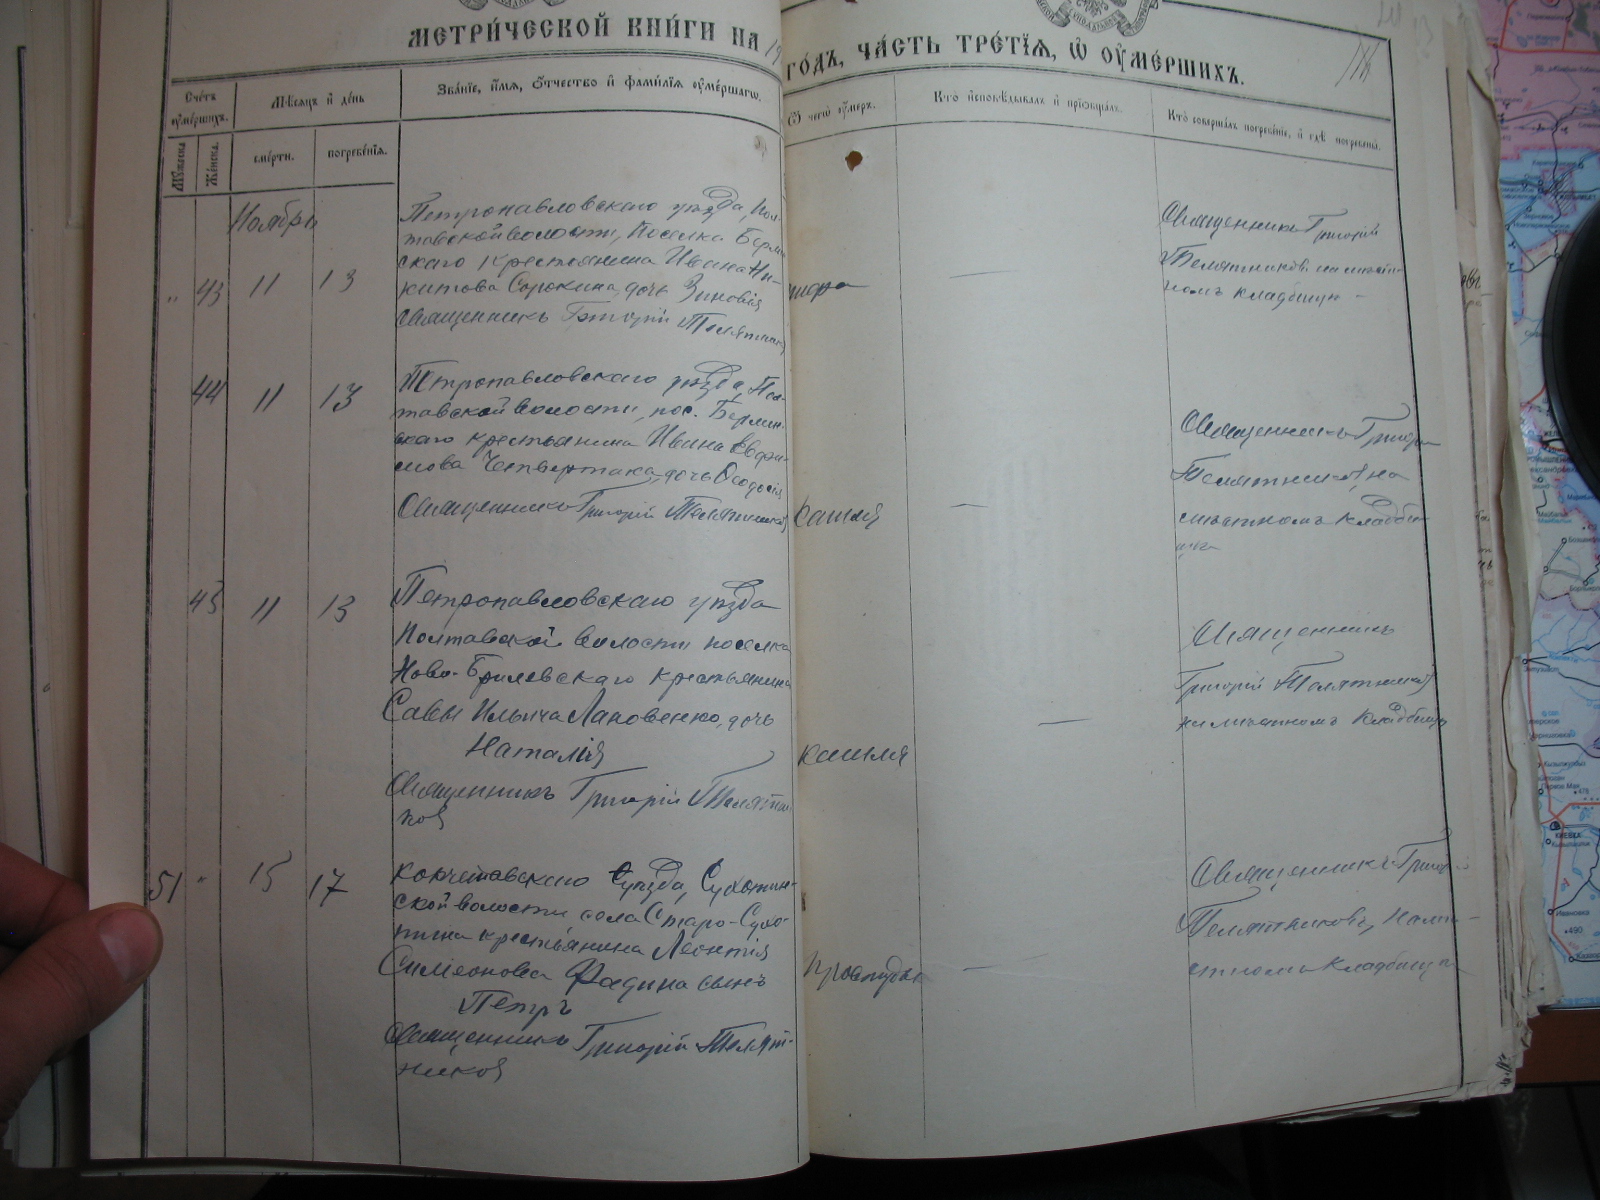 МЕТРИ́ЧЕСКОЙ КНИ́ГИ НА 19
ГО́ДЪ, ЧА́СТЬ ТРЕ́ТЇѦ, Ѡ҆ ОУ҆МЕ́РШИХЪ.
Сче́тъ оу҆ме́ршихъ.
Мѣ́сяцъ и҆ де́нь
Зва́нїе, и҆́мѧ, ѻ҆́тчество и҆ фамил́їѧ оу҆ме́ршагѡ.
Ѿ чегѡ̀ оу҆́меръ.
Кто̀ и҆сповѣ́дывалъ и҆ прїѡбща́лъ.
Кто̀ соверша́лъ погребе́нїе, и҆ гдѣ̀ погребены̀.
Мꙋ́жеска
Же́нска.
сме́рти.
погребе́нїѧ.
Ноябрь
Петропавловскаго уѣзда, Пол-
тавской волости, поселка Берли
скаго крестьянина Ивана Ни-
" 43 11 13 китова Сорокина, дочь Зиновія
Священникъ Григорій Телятник
—
Священникъ Григорій
Телятников на мѣст-
номъ кладбищѣ —
44 11 13 Петропавловскаго уѣзда, Пол-
тавской волости, пос. Берлин-
скаго крестьянина Ивана Евфи-
мова Четвертака, дочь Ѳеодосія
Священникъ Григорій Телятников
кашля
—
Священникъ Григори
Телятников на
мѣстномъ кладби-
щѣ
45 11 13 Петропавловскаго уѣзда
Полтавской волости поселка
Ново-Брилевскаго крестьянина
Савы Ильича Лановенко, дочь
Наталія
кашля
—
Священникъ Григорій Телятни
ков
Священникъ
Григорій Телятников
на мѣстномъ кладбищѣ
51 " 15 17 Кокчетавскаго уѣзда, Сухотин-
ской волости села Старо-Сухо-
тина крестьянина Леонтія
Симеонова Фадина сынъ
Петръ
простуды
—
Священникъ Григорій Телят-
ников
Священникъ Григорій
Телятниковъ, на мѣ-
стномъ кладбищѣ